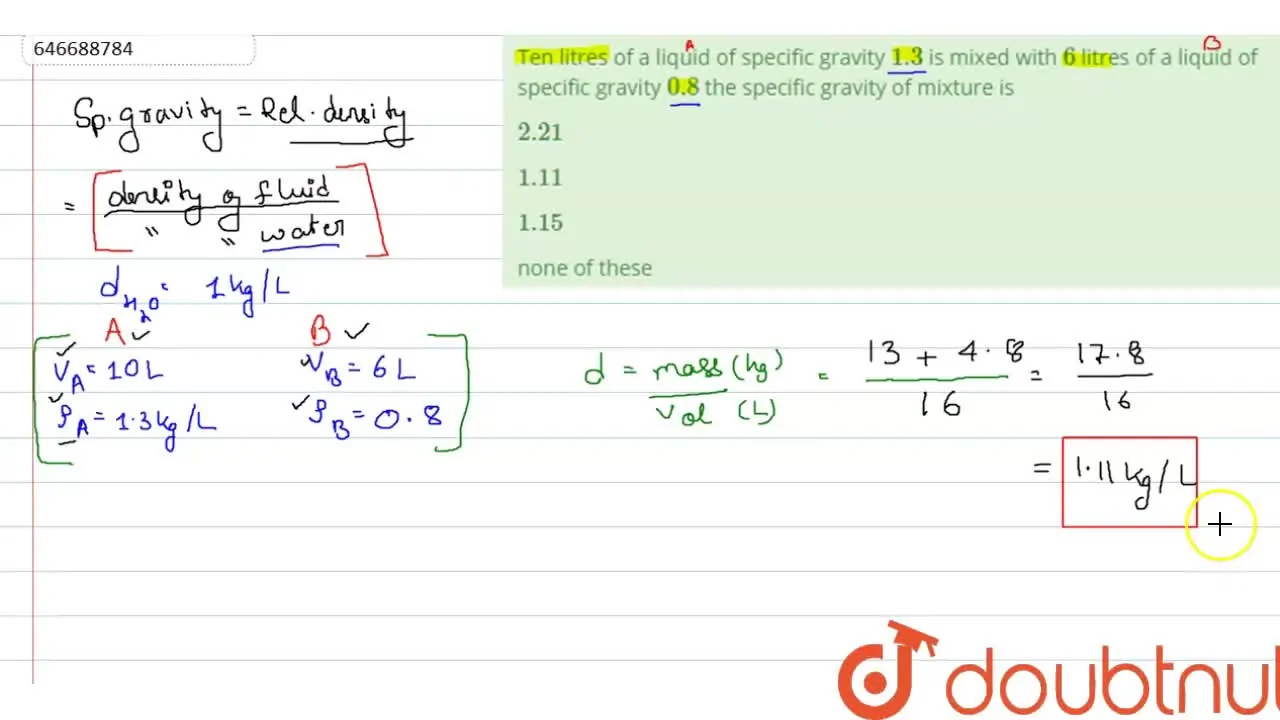 646688784
A
B
Ten litres of a liquid of specific gravity 1.3 is mixed with 6 litres of a liquid of
specific gravity 0.8 the specific gravity of mixture is
2.21
1.11
1.15
none of these
Sp. gravity = Rel. density
= density of fluid
" " water
dH2O = 1 kg/L
A B
VA = 10 L VB = 6 L
ρA = 1.3 kg/L ρB = 0.8
d = mass (kg) = 13 + 4.8 = 17.8
Vol (L) 16 16
= 1.11 kg/L
doubtnut